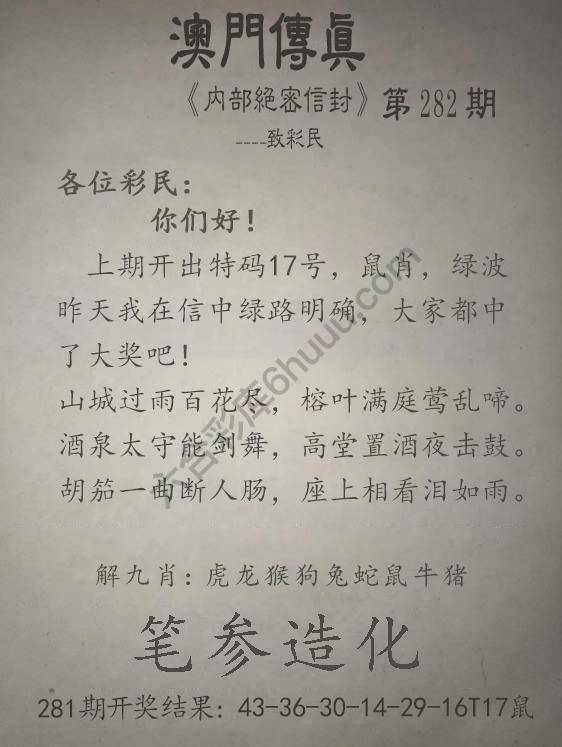 澳門傳真
《内部絕密信封》第282期
----致彩民
各位彩民：
你们好！
上期开出特码17号，鼠肖，绿波
昨天我在信中绿路明确，大家都中
了大奖吧！
山城过雨百花尽，榕叶满庭莺乱啼。
酒泉太守能剑舞，高堂置酒夜击鼓。
胡笳一曲断人肠，座上相看泪如雨。
六合彩库6huuu.com
解九肖：虎龙猴狗兔蛇鼠牛猪
笔参造化
281期开奖结果：43-36-30-14-29-16T17鼠